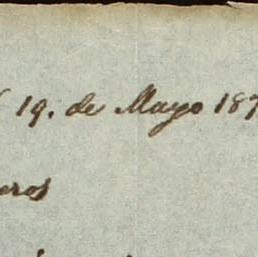 19. de Mayo 187
eros